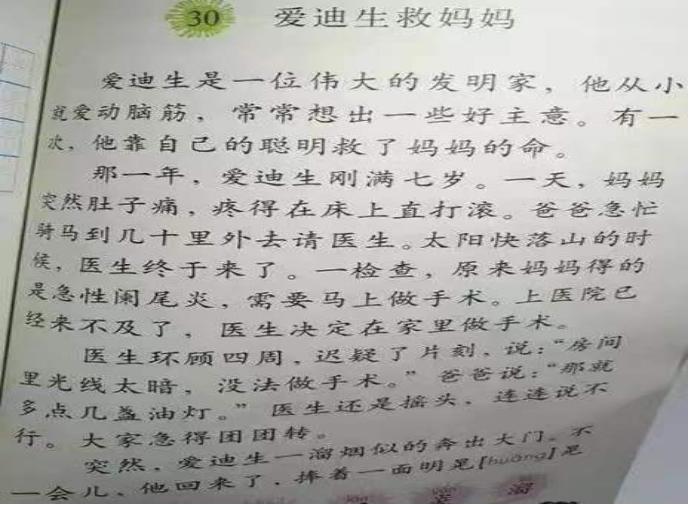 30 爱迪生救妈妈
爱迪生是一位伟大的发明家，他从小
就爱动脑筋，常常想出一些好主意。有一
次，他靠自己的聪明救了妈妈的命。
那一年，爱迪生刚满七岁。一天，妈妈
突然肚子痛，疼得在床上直打滚。爸爸急忙
骑马到几十里外去请医生。太阳快落山的时
候，医生终于来了。一检查，原来妈妈得的
是急性阑尾炎，需要马上做手术。上医院已
经来不及了，医生决定在家里做手术。
医生环顾四周，迟疑了片刻，说：“房间
里光线太暗，没法做手术。”爸爸说：“那就
多点几盏油灯。”医生还是摇头，连连说不
行。大家急得团团转。
突然，爱迪生一溜烟似的奔出大门。不
一会儿，他回来了，捧着一面明晃[huǎng]晃